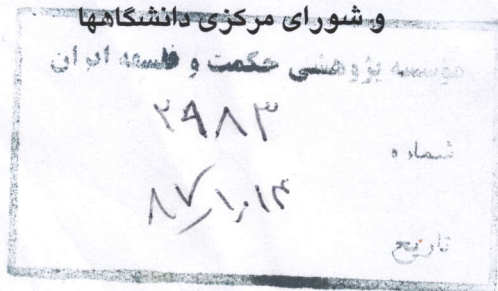 و شورای مرکزی دانشگاهها
مؤسسه پژوهشی حکمت و فلسفه ایران
۲۹۸۳
شماره
۸۷/۱۰/۱۴
تاریخ